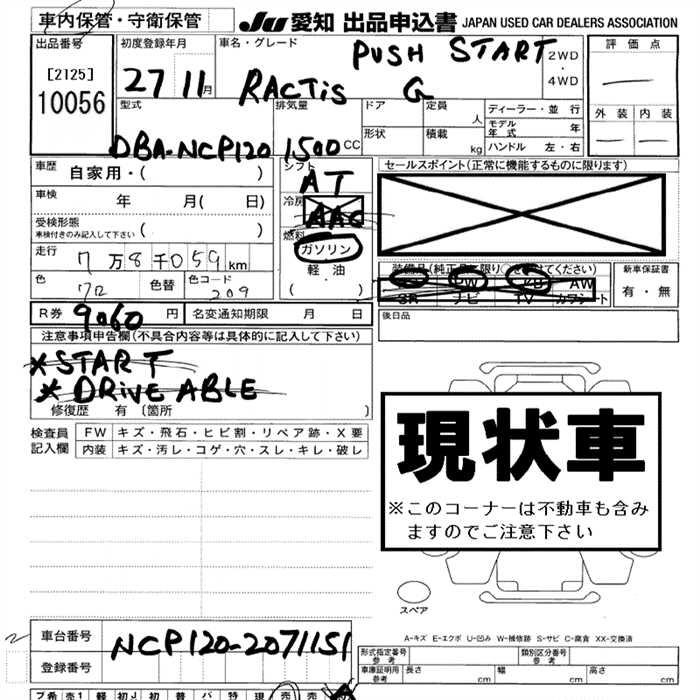 車内保管・守衛保管
JU 愛知 出品申込書 JAPAN USED CAR DEALERS ASSOCIATION
出品番号
[2125]
10056
初度登録年月
27 11 月
車名・グレード
PUSH START
RACTIS G
2WD
・
4WD
評価点
外装 内装
型式
DBA-NCP120
排気量
1500 cc
ドア
形状
定員 人
積載 kg
ディーラー・並 行
モデル年式 年
ハンドル 左・右
車歴 自家用・( )
車検 年 月( 日)
受検形態
車検付きのみ記入して下さい ( )
走行 7万8千059km
色 色替 色コード 209
シフト
AT
冷房
AAC
燃料
ガソリン
軽 油
( ・ )
セールスポイント(正常に機能するものに限ります)
装備品(純正品に限り○を付けてください)
PW AW
SR ナビ TV カワシート
新車保証書
有・無
R券 9060 円 名変通知期限 月 日
後日品
注意事項申告欄(不具合内容等は具体的に記入して下さい)
*START
*DRIVEABLE
修復歴 有 〔箇所 〕
検査員記入欄
FW キズ・飛石・ヒビ割・リペア跡・X要
内装 キズ・汚レ・コゲ・穴・スレ・キレ・破レ
現状車
※このコーナーは不動車も含み
ますのでご注意下さい
スペア
A-キズ E-エクボ U-凹み W-補修跡 S-サビ C-腐食 XX-交換済
車台番号 NCP120-2071151
登録番号
形式指定番号
参考
類別区分番号
参考
車庫証明用
参考
長さ cm 幅 cm 高さ cm